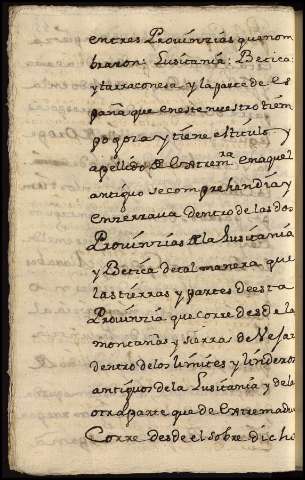 en tres Provinzias que nom
braron: Lusitania: Betica:
y tarraconesa. y la parte de Es
paña que en este nuestro tiem
po goza y tiene el titulo. y
apellido de Extrem.ra en aquel
antiguo se comprehendia y
enzerrava dentro de las dos
Provinzias de la Lusitania
y Betica de tal manera que
las tierras y partes de esta
Provinzia que corre desde las
montañas y sierras de Vejar
dentro de los limites y linderos
antiguos de la Lusitania y de la
otra parte que de Extremadu
Corre desde el sobre dicho